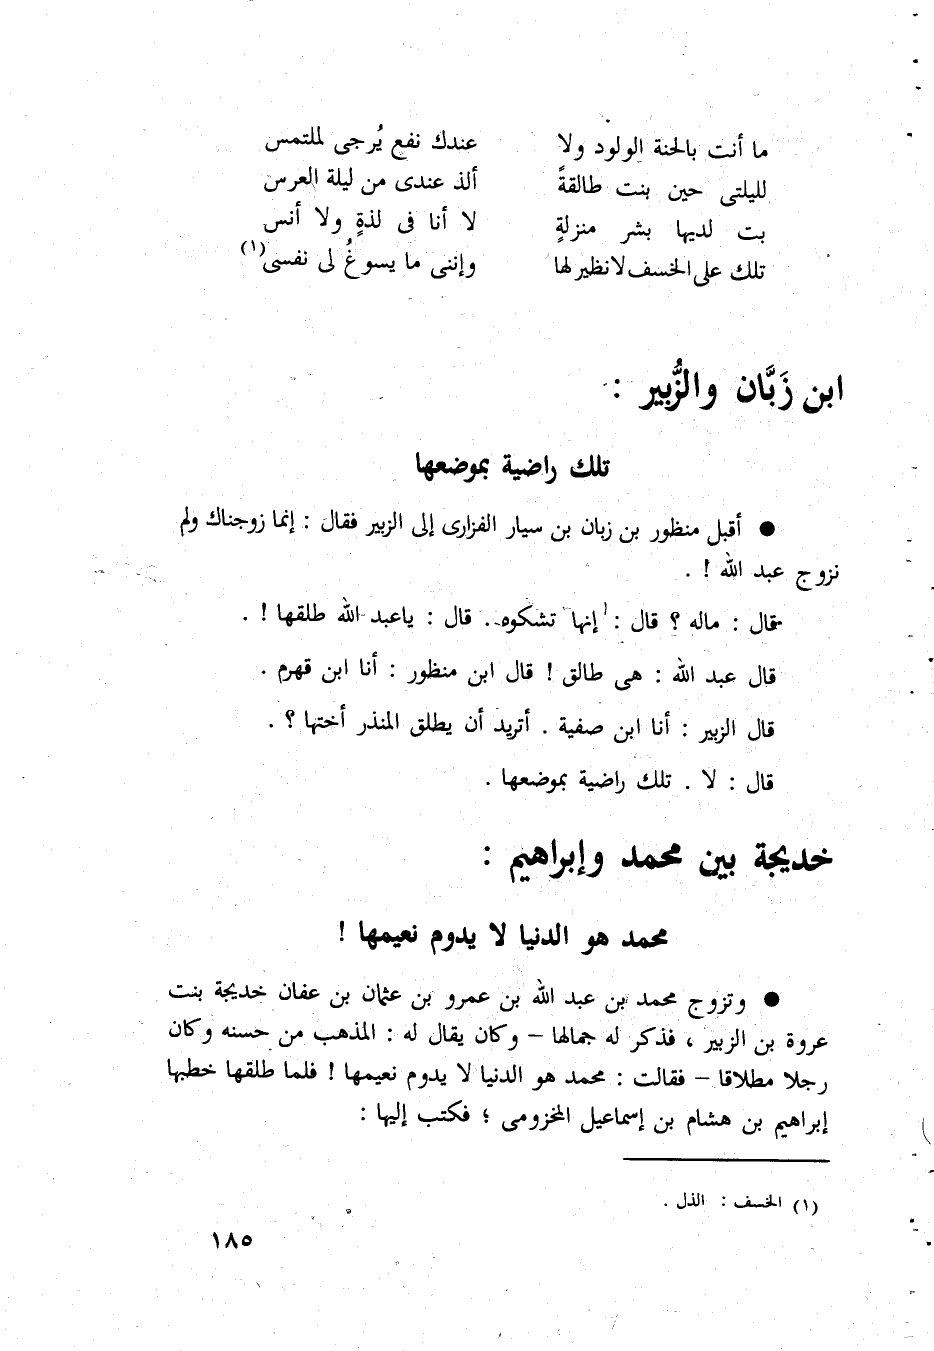 ما أنت بالحنة الولود ولا عندك نفع يُرجى لملتمس
لليلتى حين بنت طالقةً ألذ عندى من ليلة العرس
بت لديها بشر منزلةٍ لا أنا فى لذةٍ ولا أنس
تلك على الخسف لانظير لها وإننى ما يسوغُ لى نفسى(١)
ابن زَبَّان والزُّبير :
تلك راضية بموضعها
● أقبل منظور بن زبان بن سيار الفزارى إلى الزبير فقال : إنما زوجناك ولم
نزوج عبد الله ! .
قال : ماله ؟ قال : إنها تشكوه . قال : ياعبد الله طلقها ! .
قال عبد الله : هى طالق ! قال ابن منظور : أنا ابن قهرم .
قال الزبير : أنا ابن صفية . أتريد أن يطلق المنذر أختها ؟ .
قال : لا . تلك راضية بموضعها .
خديجة بين محمد وإبراهيم :
محمد هو الدنيا لا يدوم نعيمها !
● وتزوج محمد بن عبد الله بن عمرو بن عثمان بن عفان خديجة بنت
عروة بن الزبير ، فذكر له جمالها – وكان يقال له : المذهب من حسنه وكان
رجلا مطلاقا – فقالت : محمد هو الدنيا لا يدوم نعيمها ! فلما طلقها خطبها
إبراهيم بن هشام بن إسماعيل المخزومى ؛ فكتب إليها :
(١) الخسف : الذل .
١٨٥